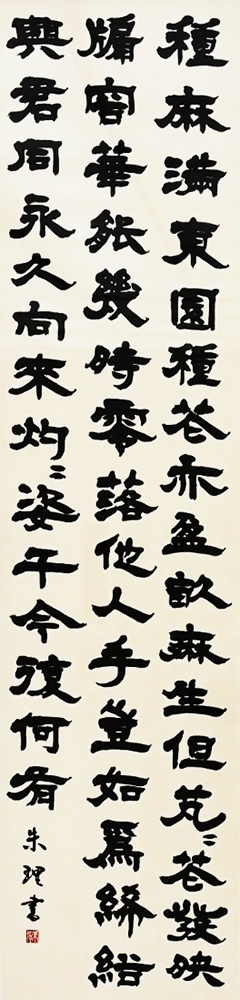 種麻滿東園種花亦盈畝麻生但芃芃花發映
牖容華能幾時零落他人手豈如爲絺綌
與君同永久向來灼灼姿于今復何有
朱理書